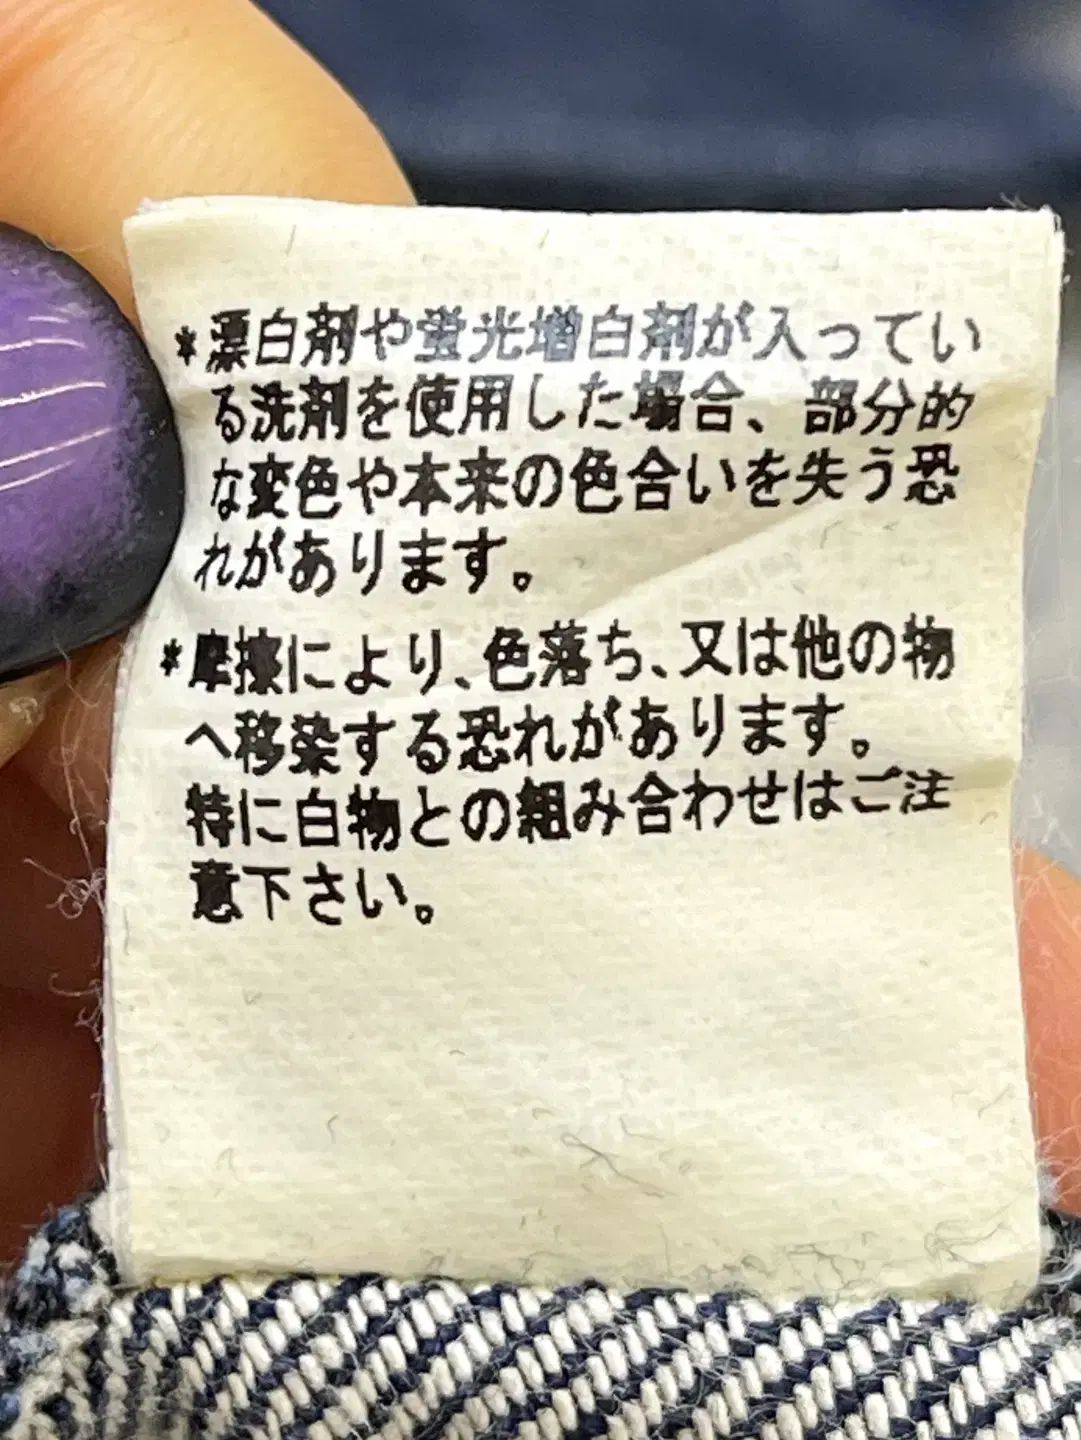 *漂白剤や蛍光増白剤が入ってい
る洗剤を使用した場合、部分的
な変色や本来の色合いを失う恐
れがあります。
*摩擦により、色落ち、又は他の物
へ移染する恐れがあります。
特に白物との組み合わせはご注
意下さい。